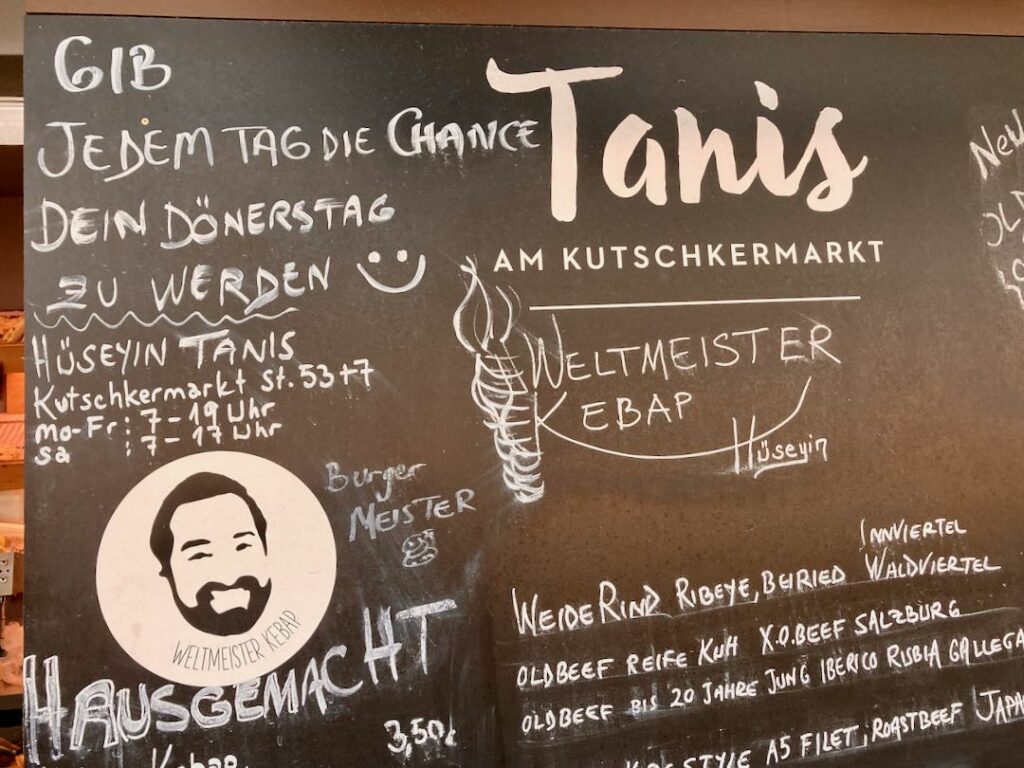 GIB
JEDEM TAG DIE CHANCE
DEIN DÖNERSTAG
ZU WERDEN
HÜSEYIN TANIS
Kutschkermarkt St. 53+7
Mo-Fr: 7-19 Uhr
Sa : 7-17 Uhr
WELTMEISTER KEBAP
Burger
MEISTER
HAUSGEMACHT
3,50€
Kebap
Tanis
AM KUTSCHKERMARKT
WELTMEISTER
KEBAP
Hüseyin
INNVIERTEL
WEIDERIND RIBEYE, BEIRIED WALDVIERTEL
OLDBEEF REIFE KUH X.O.BEEF SALZBURG
OLDBEEF BIS 20 JAHRE JUNG IBERICO RUBIA GALLEGA
STYLE A5 FILET, ROASTBEEF JAPA
NEW
OLD